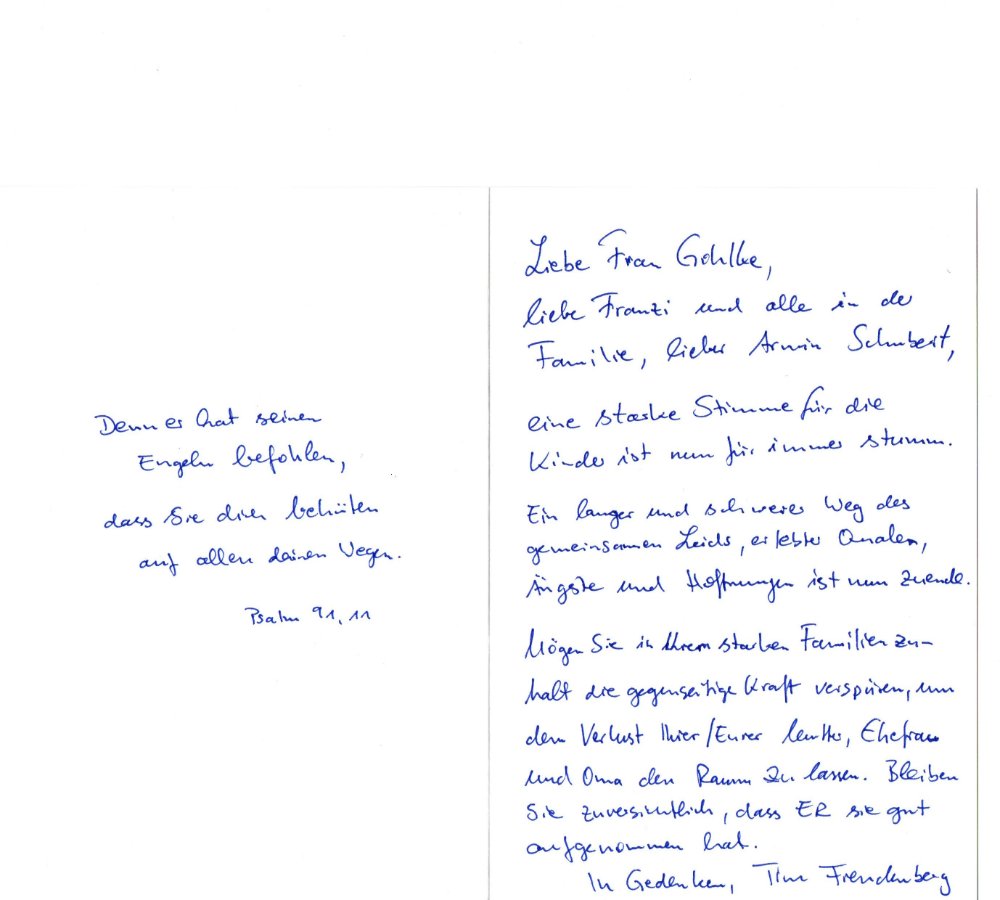 Denn er hat seinen
Engeln befohlen,
dass Sie dich behüten
auf allen deinen Wegen.
Psalm 91, 11
Liebe Frau Gohlke,
liebe Franzi und alle in der
Familie, lieber Armin Schubert,
eine starke Stimme für die
Kinder ist nun für immer stumm.
Ein langer und schwerer Weg des
gemeinsamen Leids, erlebter Qualen,
Ängste und Hoffnungen ist nun zuende.
Mögen Sie in Ihrem starken Familienzu-
halt die gegenseitige Kraft verspüren, um
dem Verlust Ihrer/Eurer Mutter, Ehefrau
und Oma den Raum zu lassen. Bleiben
Sie zuversichtlich, dass ER sie gut
aufgenommen hat.
In Gedenken, Tim Freudenberg